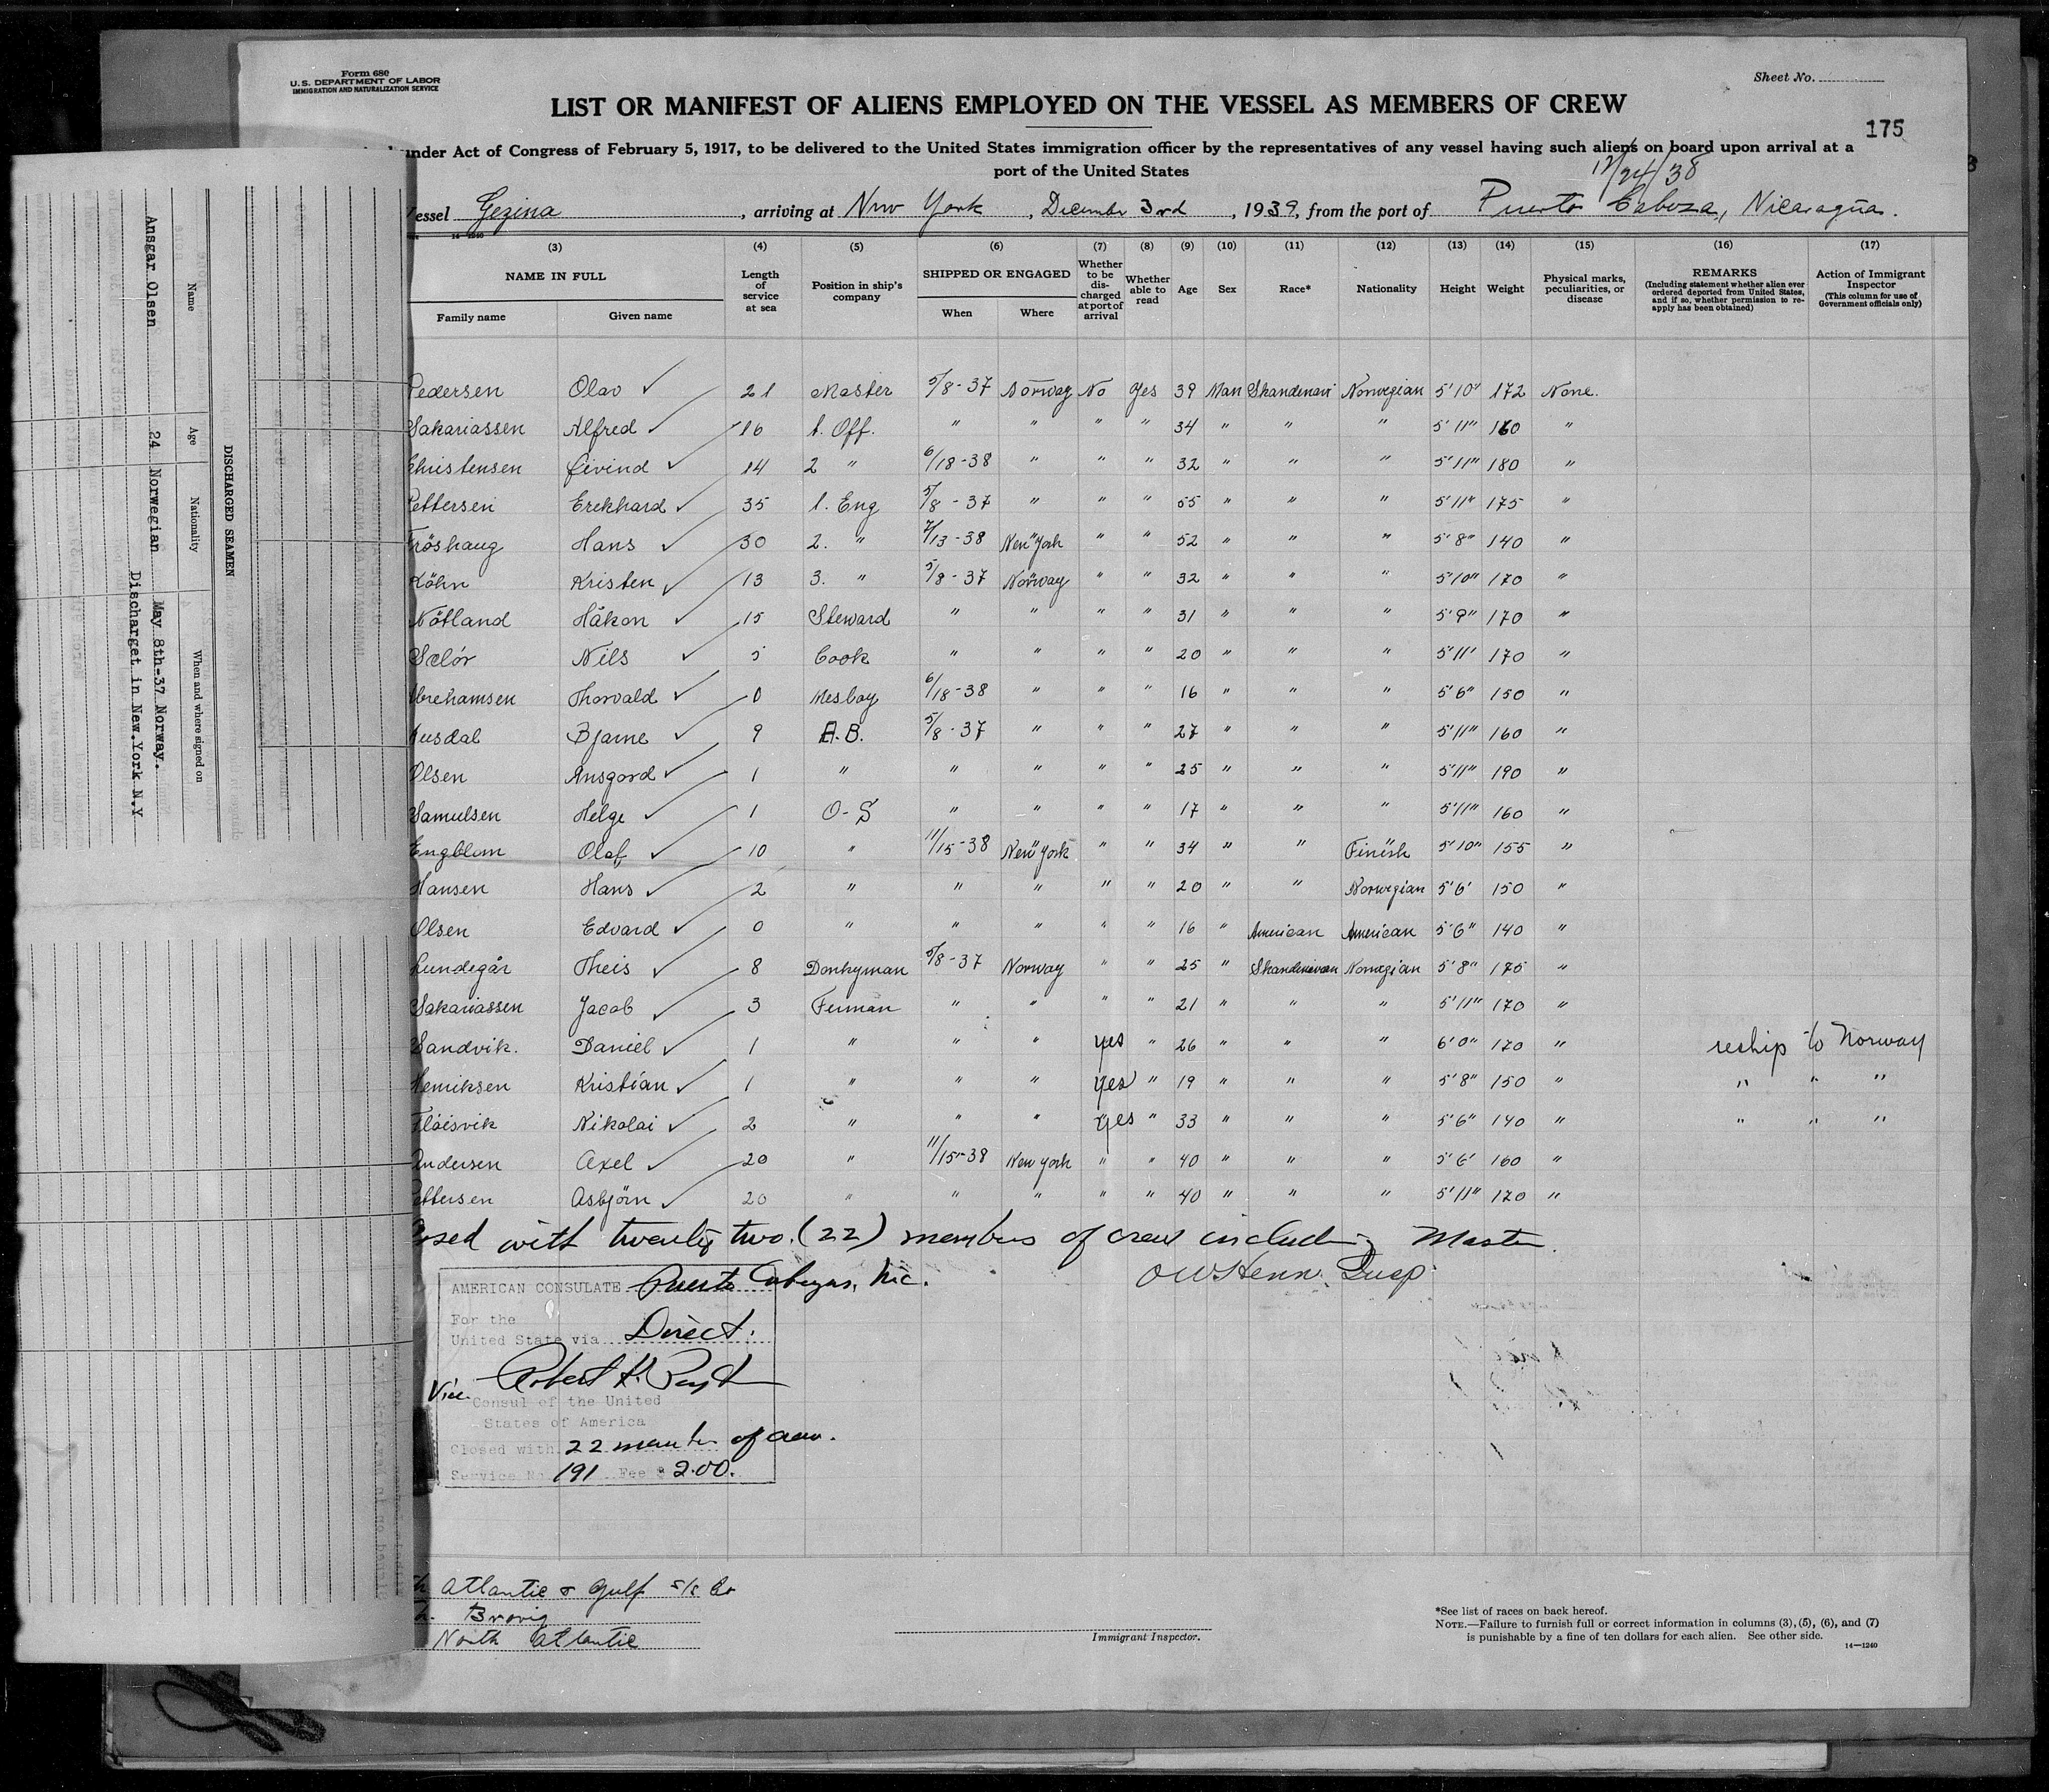 Form 680
U. S. DEPARTMENT OF LABOR
IMMIGRATION AND NATURALIZATION SERVICE
Sheet No.
LIST OR MANIFEST OF ALIENS EMPLOYED ON THE VESSEL AS MEMBERS OF CREW
175
under Act of Congress of February 5, 1917, to be delivered to the United States immigration officer by the representatives of any vessel having such aliens on board upon arrival at a
port of the United States
Vessel Gezina, arriving at New York, December 3rd, 1939, from the port of Puerto Cabeza, Nicaragua.
(3) (4) (5) (6) (7) (8) (9) (10) (11) (12) (13) (14) (15) (16) (17)
NAME IN FULL
Family name Given name
Length of service at sea
Position in ship's company
SHIPPED OR ENGAGED
When Where
Whether to be discharged at port of arrival
Whether able to read
Age Sex Race* Nationality Height Weight
Physical marks, peculiarities, or disease
REMARKS
(Including statement whether alien ever ordered deported from United States, and if so, whether permission to reapply has been obtained)
Action of Immigrant Inspector
(This column for use of Government officials only)
Pedersen Olav ✓ 21 Master 5/8-37 Norway No Yes 39 Man Skandinavi Norwegian 5'10" 172 None.
Sakariassen Alfred ✓ 16 1. Off. " " " " 34 " " " 5'11" 160 "
Christensen Eivind ✓ 14 2 " 6/18-38 " " " 32 " " " 5'11" 180 "
Pettersen Erekhard ✓ 35 1. Eng 5/8-37 " " " 55 " " " 5'11" 175 "
Fröshaug Hans ✓ 30 2. " 7/13-38 New York " " 52 " " " 5'8" 140 "
Köhn Kristen ✓ 13 3. " 5/8-37 Norway " " 32 " " " 5'10" 170 "
Nötland Håkon ✓ 15 Steward " " " " 31 " " " 5'9" 170 "
Selör Nils ✓ 5 Cook " " " " 20 " " " 5'11' 170 "
Abrehamsen Thorvald ✓ 0 Mesboy 6/18-38 " " " 16 " " " 5'6" 150 "
Kusdal Bjarne ✓ 9 A.B. 5/8-37 " " " 27 " " " 5'11" 160 "
Olsen Ansgard ✓ 1 " " " " " 25 " " " 5'11" 190 "
Samuelsen Helge ✓ 1 O-S " " " " 17 " " " 5'11" 160 "
Engblom Olaf ✓ 10 " 11/15-38 New York " " 34 " " Finish 5'10" 155 "
Hansen Hans ✓ 2 " " " " " 20 " " Norwegian 5'6' 150 "
Olsen Edvard ✓ 0 " " " " " 16 " American American 5'6" 140 "
Lundegår Theis ✓ 8 Donkyman 5/8-37 Norway " " 25 " Skandinivan Norwegian 5'8" 175 "
Sakariassen Jacob ✓ 3 Firman " " " " 21 " " " 5'11" 170 "
Sandvik. Daniel ✓ 1 " " " yes " 26 " " " 6'0" 170 " reship to Norway
Henriksen Kristian ✓ 1 " " " yes " 19 " " " 5'8" 150 " " " "
Flöisvik Nikolai ✓ 2 " " " yes " 33 " " " 5'6" 140 " " " "
Andersen Axel ✓ 20 " 11/15-38 New York " " 40 " " " 5'6' 160 "
Pettersen Asbjörn ✓ 20 " " " " " 40 " " " 5'11" 170 "
Closed with twenty two (22) members of crew including Master.
AMERICAN CONSULATE Puerto Cabezas, Nic.
For the
United State via Direct.
Vice Consul of the United
States of America
Closed with 22 members of crew.
Service No 191 Fee $ 2.00.
Atlantic & Gulf S/S Co
Brovig
North Atlantic
Immigrant Inspector.
*See list of races on back hereof.
NOTE.—Failure to furnish full or correct information in columns (3), (5), (6), and (7)
is punishable by a fine of ten dollars for each alien. See other side.
14—1240
DISCHARGED SEAMEN
Name Age Nationality When and where signed on
Ansgar Olsen 24 Norwegian May 8th-37 Norway.
Discharget in New.York N.Y
12/24/38